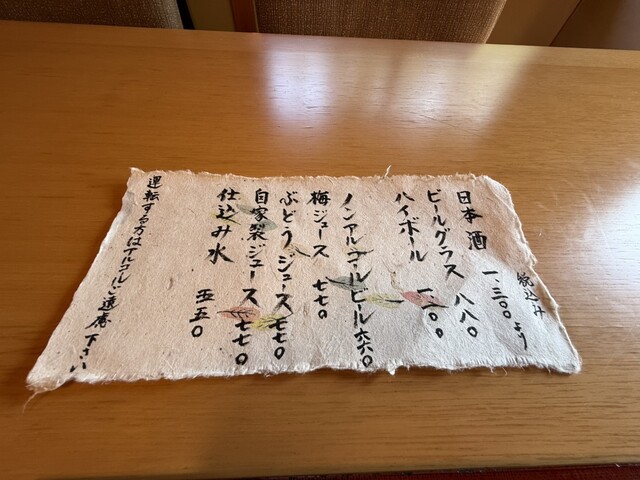 税込み
日本酒 一、三〇〇より
ビールグラス 八八〇
ハイボール 一、一〇〇
ノンアルコールビール 六六〇
梅ジュース 七七〇
ぶどうジュース 七七〇
自家製ジュース 七七〇
仕込み水 五五〇
運転する方はアルコールご遠慮下さい